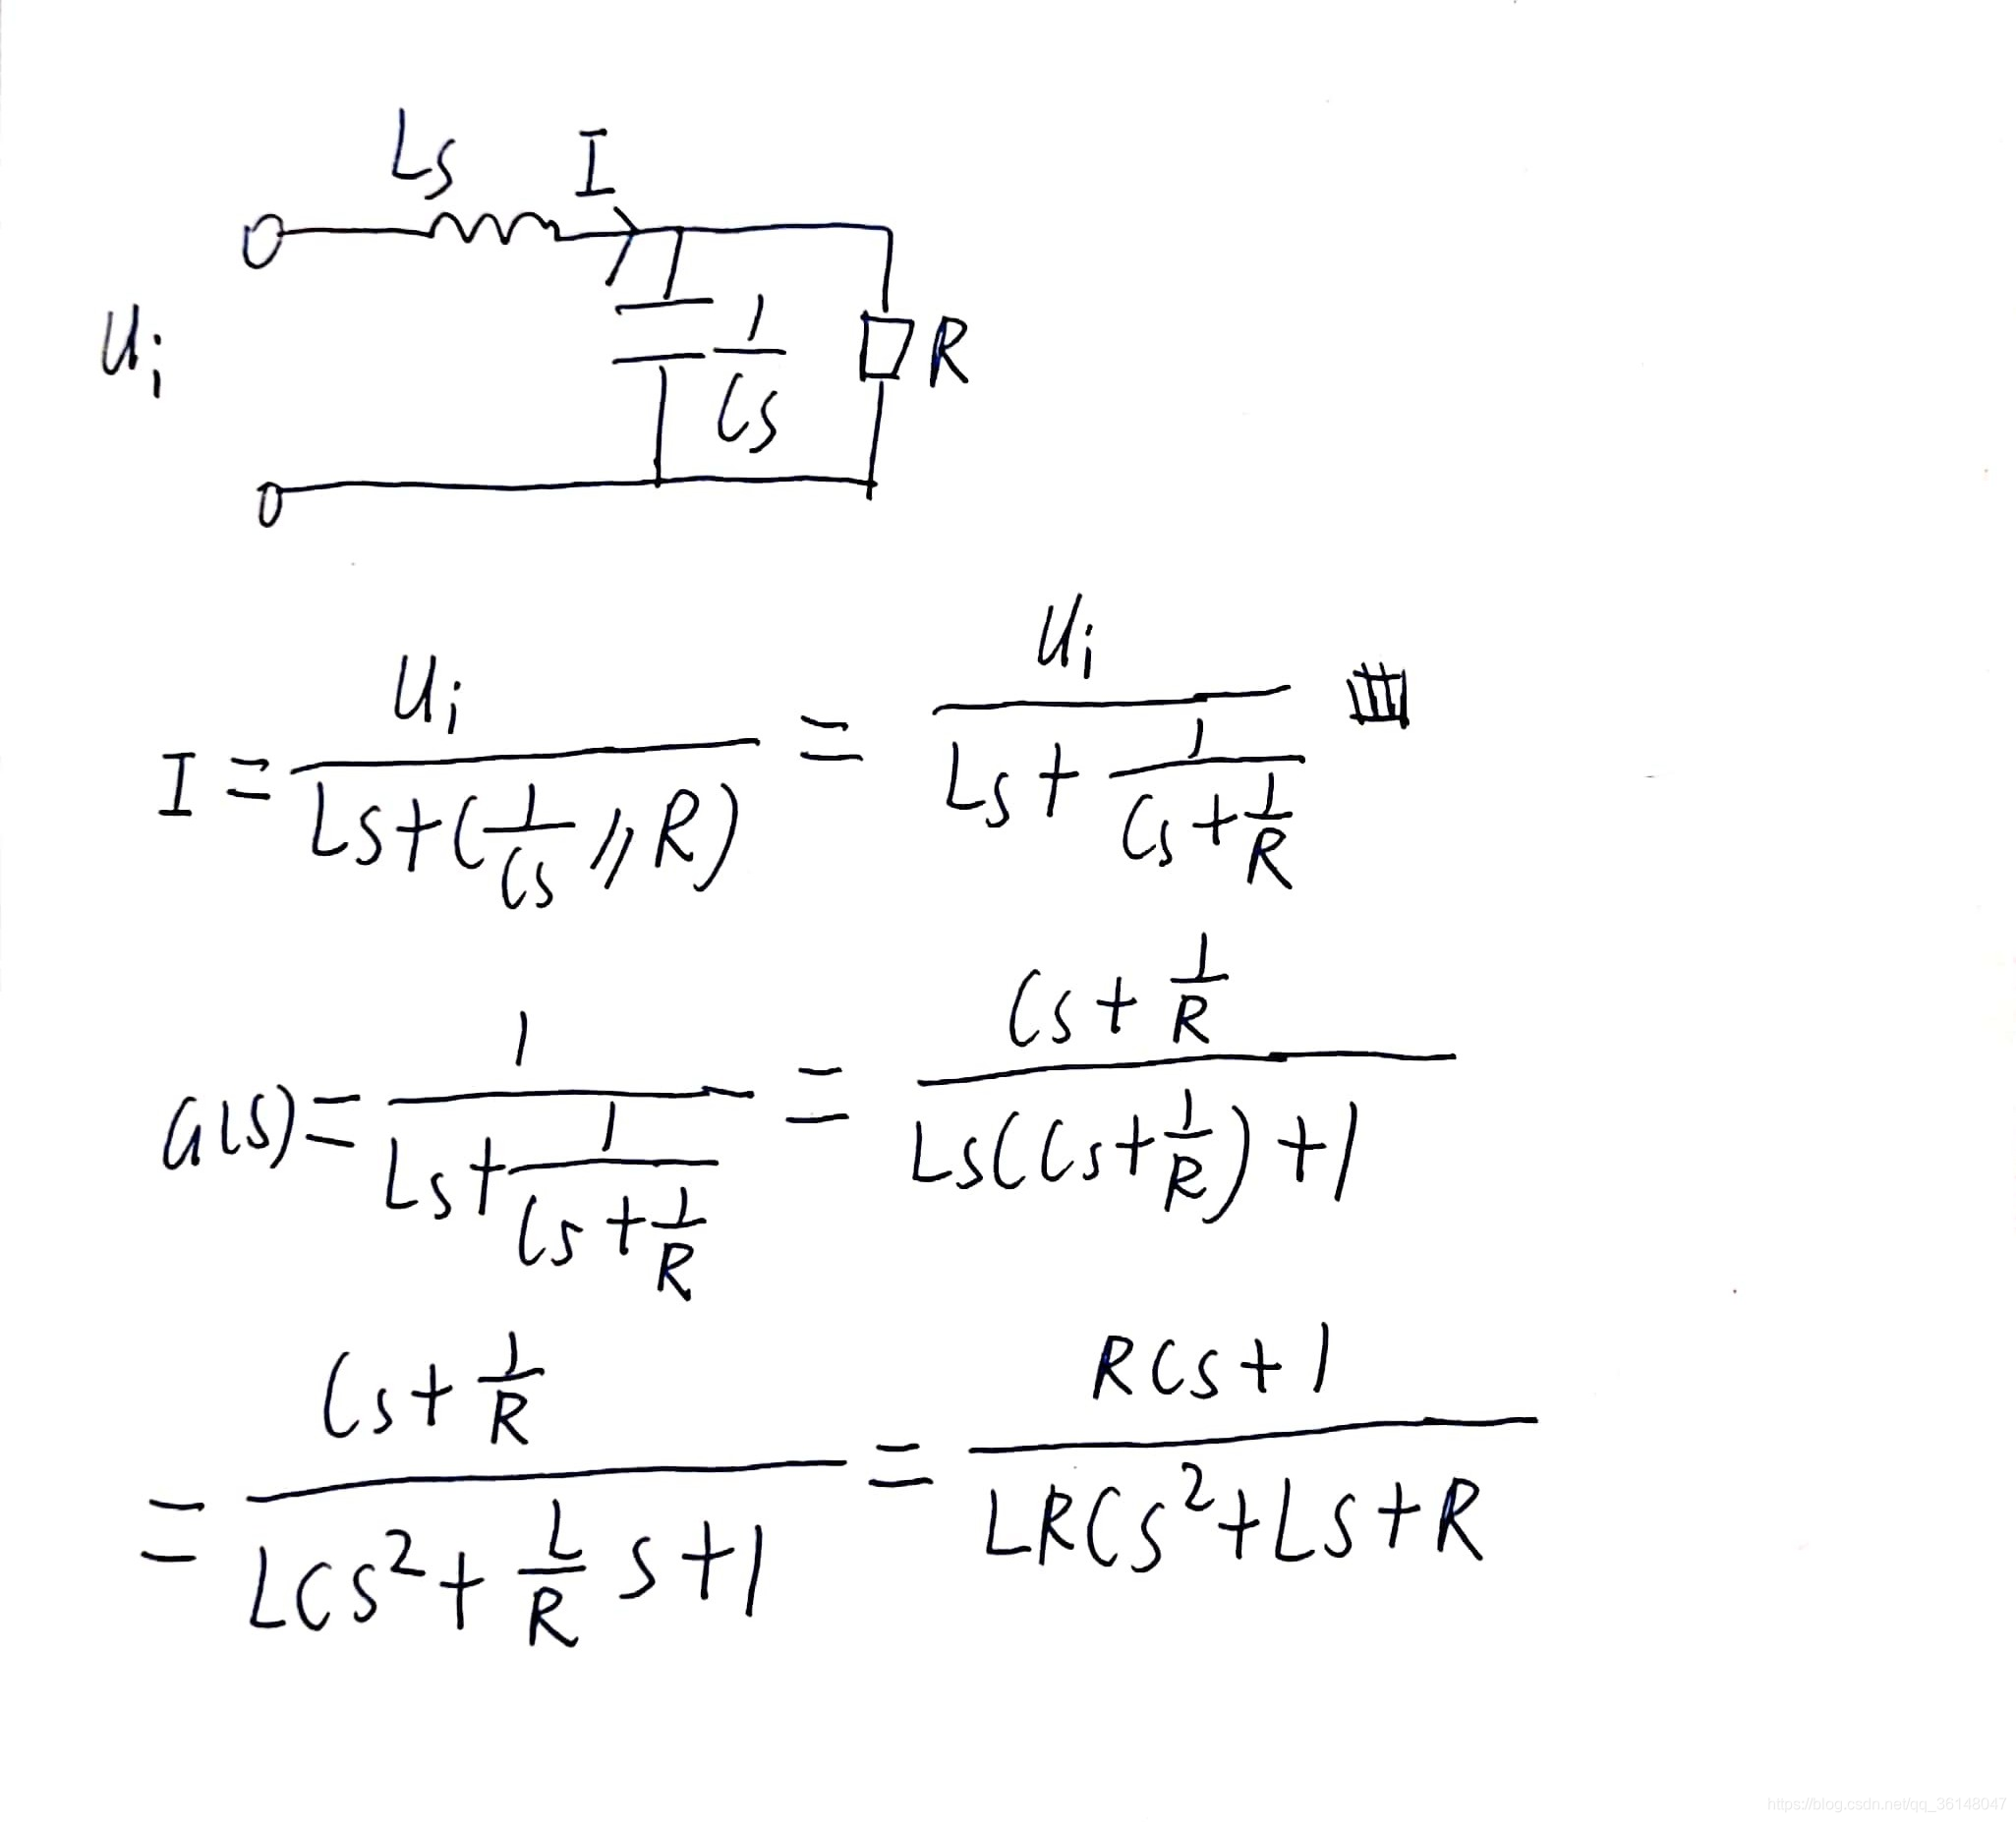 Ls I
Ui
1/Cs
R
I = Ui/(Ls+(1/Cs // R)) = Ui/(Ls+1/(Cs+1/R))
G(s) = 1/(Ls+1/(Cs+1/R)) = (Cs+1/R)/(Ls(Cs+1/R)+1)
= (Cs+1/R)/(LCs²+L/R s+1) = (RCs+1)/(LRCs²+Ls+R)
https://blog.csdn.net/qq_36148047